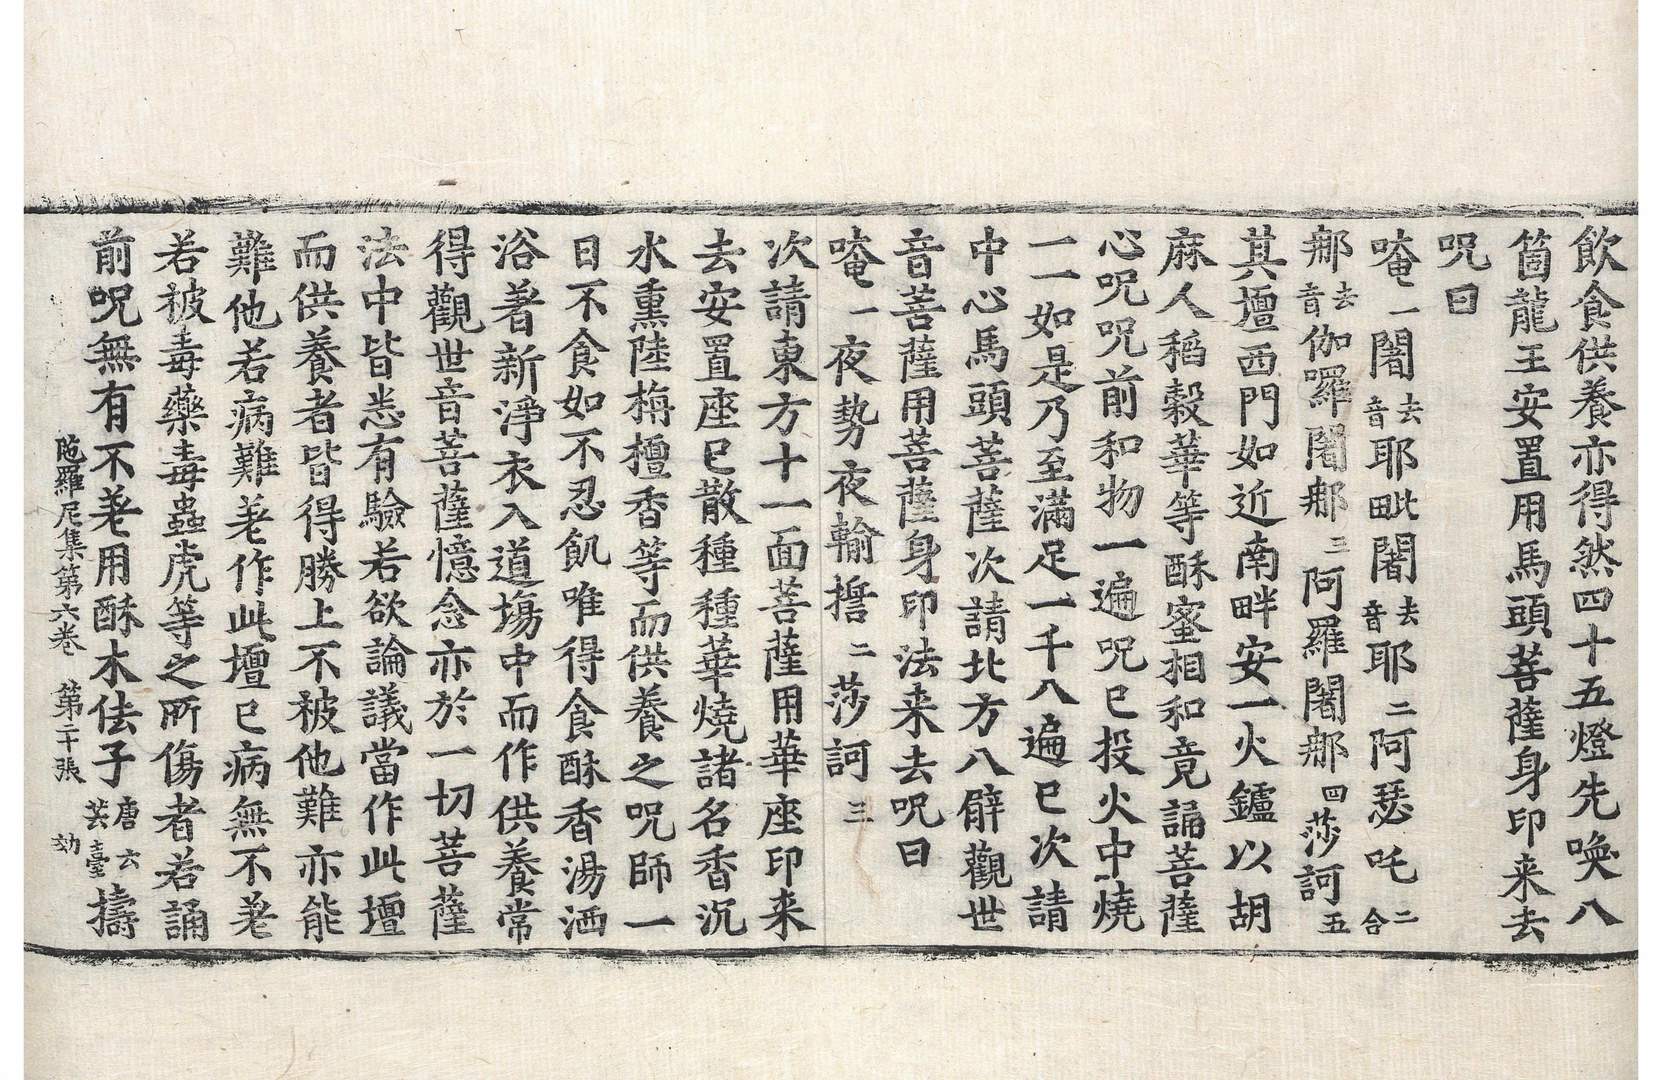 飲食供養亦得然四十五燈先喚八
箇龍王安置用馬頭菩薩身印来去
呪曰
唵一闍去音耶毗闍去音耶二阿瑟吒二合
那去音伽囉闍那三阿羅闍那四莎訶五
其壇西門如近南畔安一火鑪以胡
麻人稻穀華等酥蜜相和竟誦菩薩
心呪呪前和物一遍呪已投火中燒
一一如是乃至滿足一千八遍已次請
中心馬頭菩薩次請北方八臂觀世
音菩薩用菩薩身印法来去呪曰
唵一夜勢夜輸擔二莎訶三
次請東方十一面菩薩用華座印来
去安置座已散種種華燒諸名香沉
水熏陸栴檀香等而供養之呪師一
日不食如不忍飢唯得食酥香湯洒
浴著新淨衣入道場中而作供養常
得觀世音菩薩憶念亦於一切菩薩
法中皆悉有驗若欲論議當作此壇
而供養者皆得勝上不被他難亦能
難他若病難差作此壇已病無不差
若被毒藥毒蟲虎等之所傷者若誦
前呪無有不差用酥木佉子唐云芸臺擣
陁羅尼集第六卷 第二十張 効